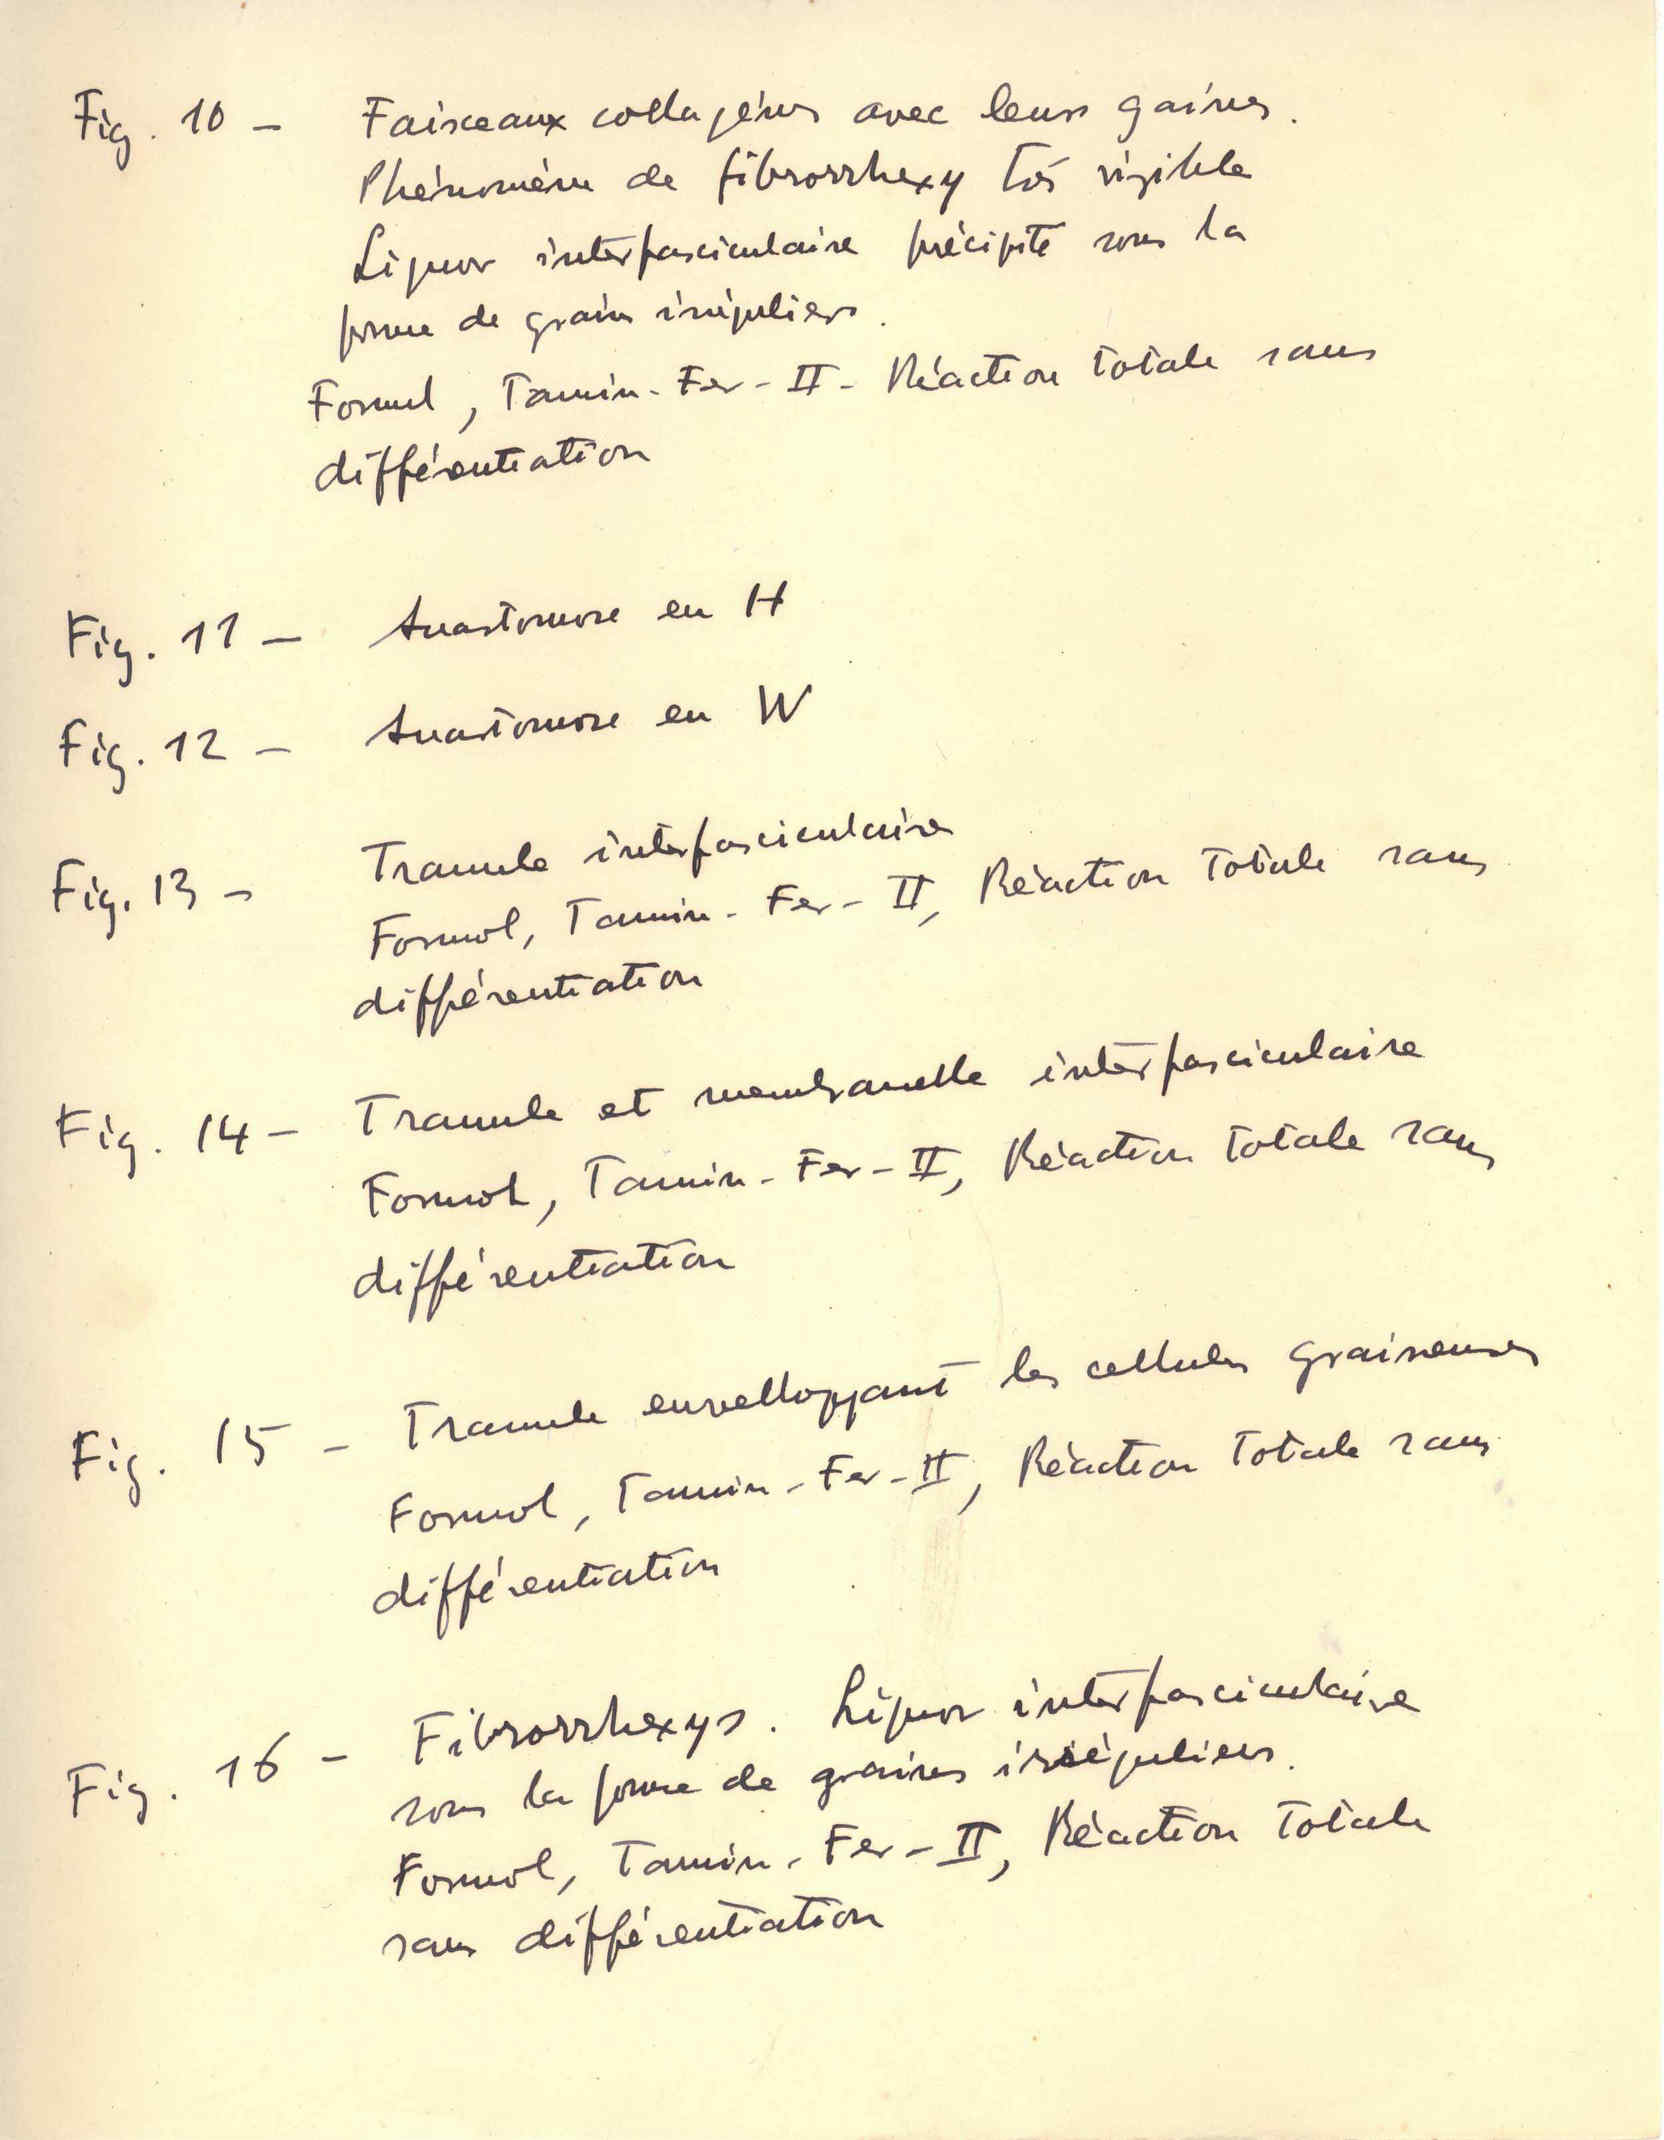 Fig. 10 - Faisceaux collagénes avec leurs gaines.
Phénoméne de fibrorrhexy trés visible
Liquor interfasciculaire précipité sous la
forme de grains irréguliers.
Formol, Tannin-Fer-II- Réaction totale sans
différentiation
Fig. 11 - Anastomose en H
Fig. 12 - Anastomose en W
Fig. 13 - Tramule interfasciculaire
Formol, Tannin-Fer-II, Réaction totale sans
différentiation
Fig. 14 - Tramule et membranelle interfasciculaire
Formol, Tannin-Fer-II, Réaction totale sans
différentiation
Fig. 15 - Tramule envelloppant les cellules graisseuses
Formol, Tannin-Fer-II, Réaction totale sans
différentiation
Fig. 16 - Fibrorrhexys. Liquor interfasciculaire
sous la forme de graines irréguliers.
Formol, Tannin-Fer-II, Réaction totale
sans différentiation